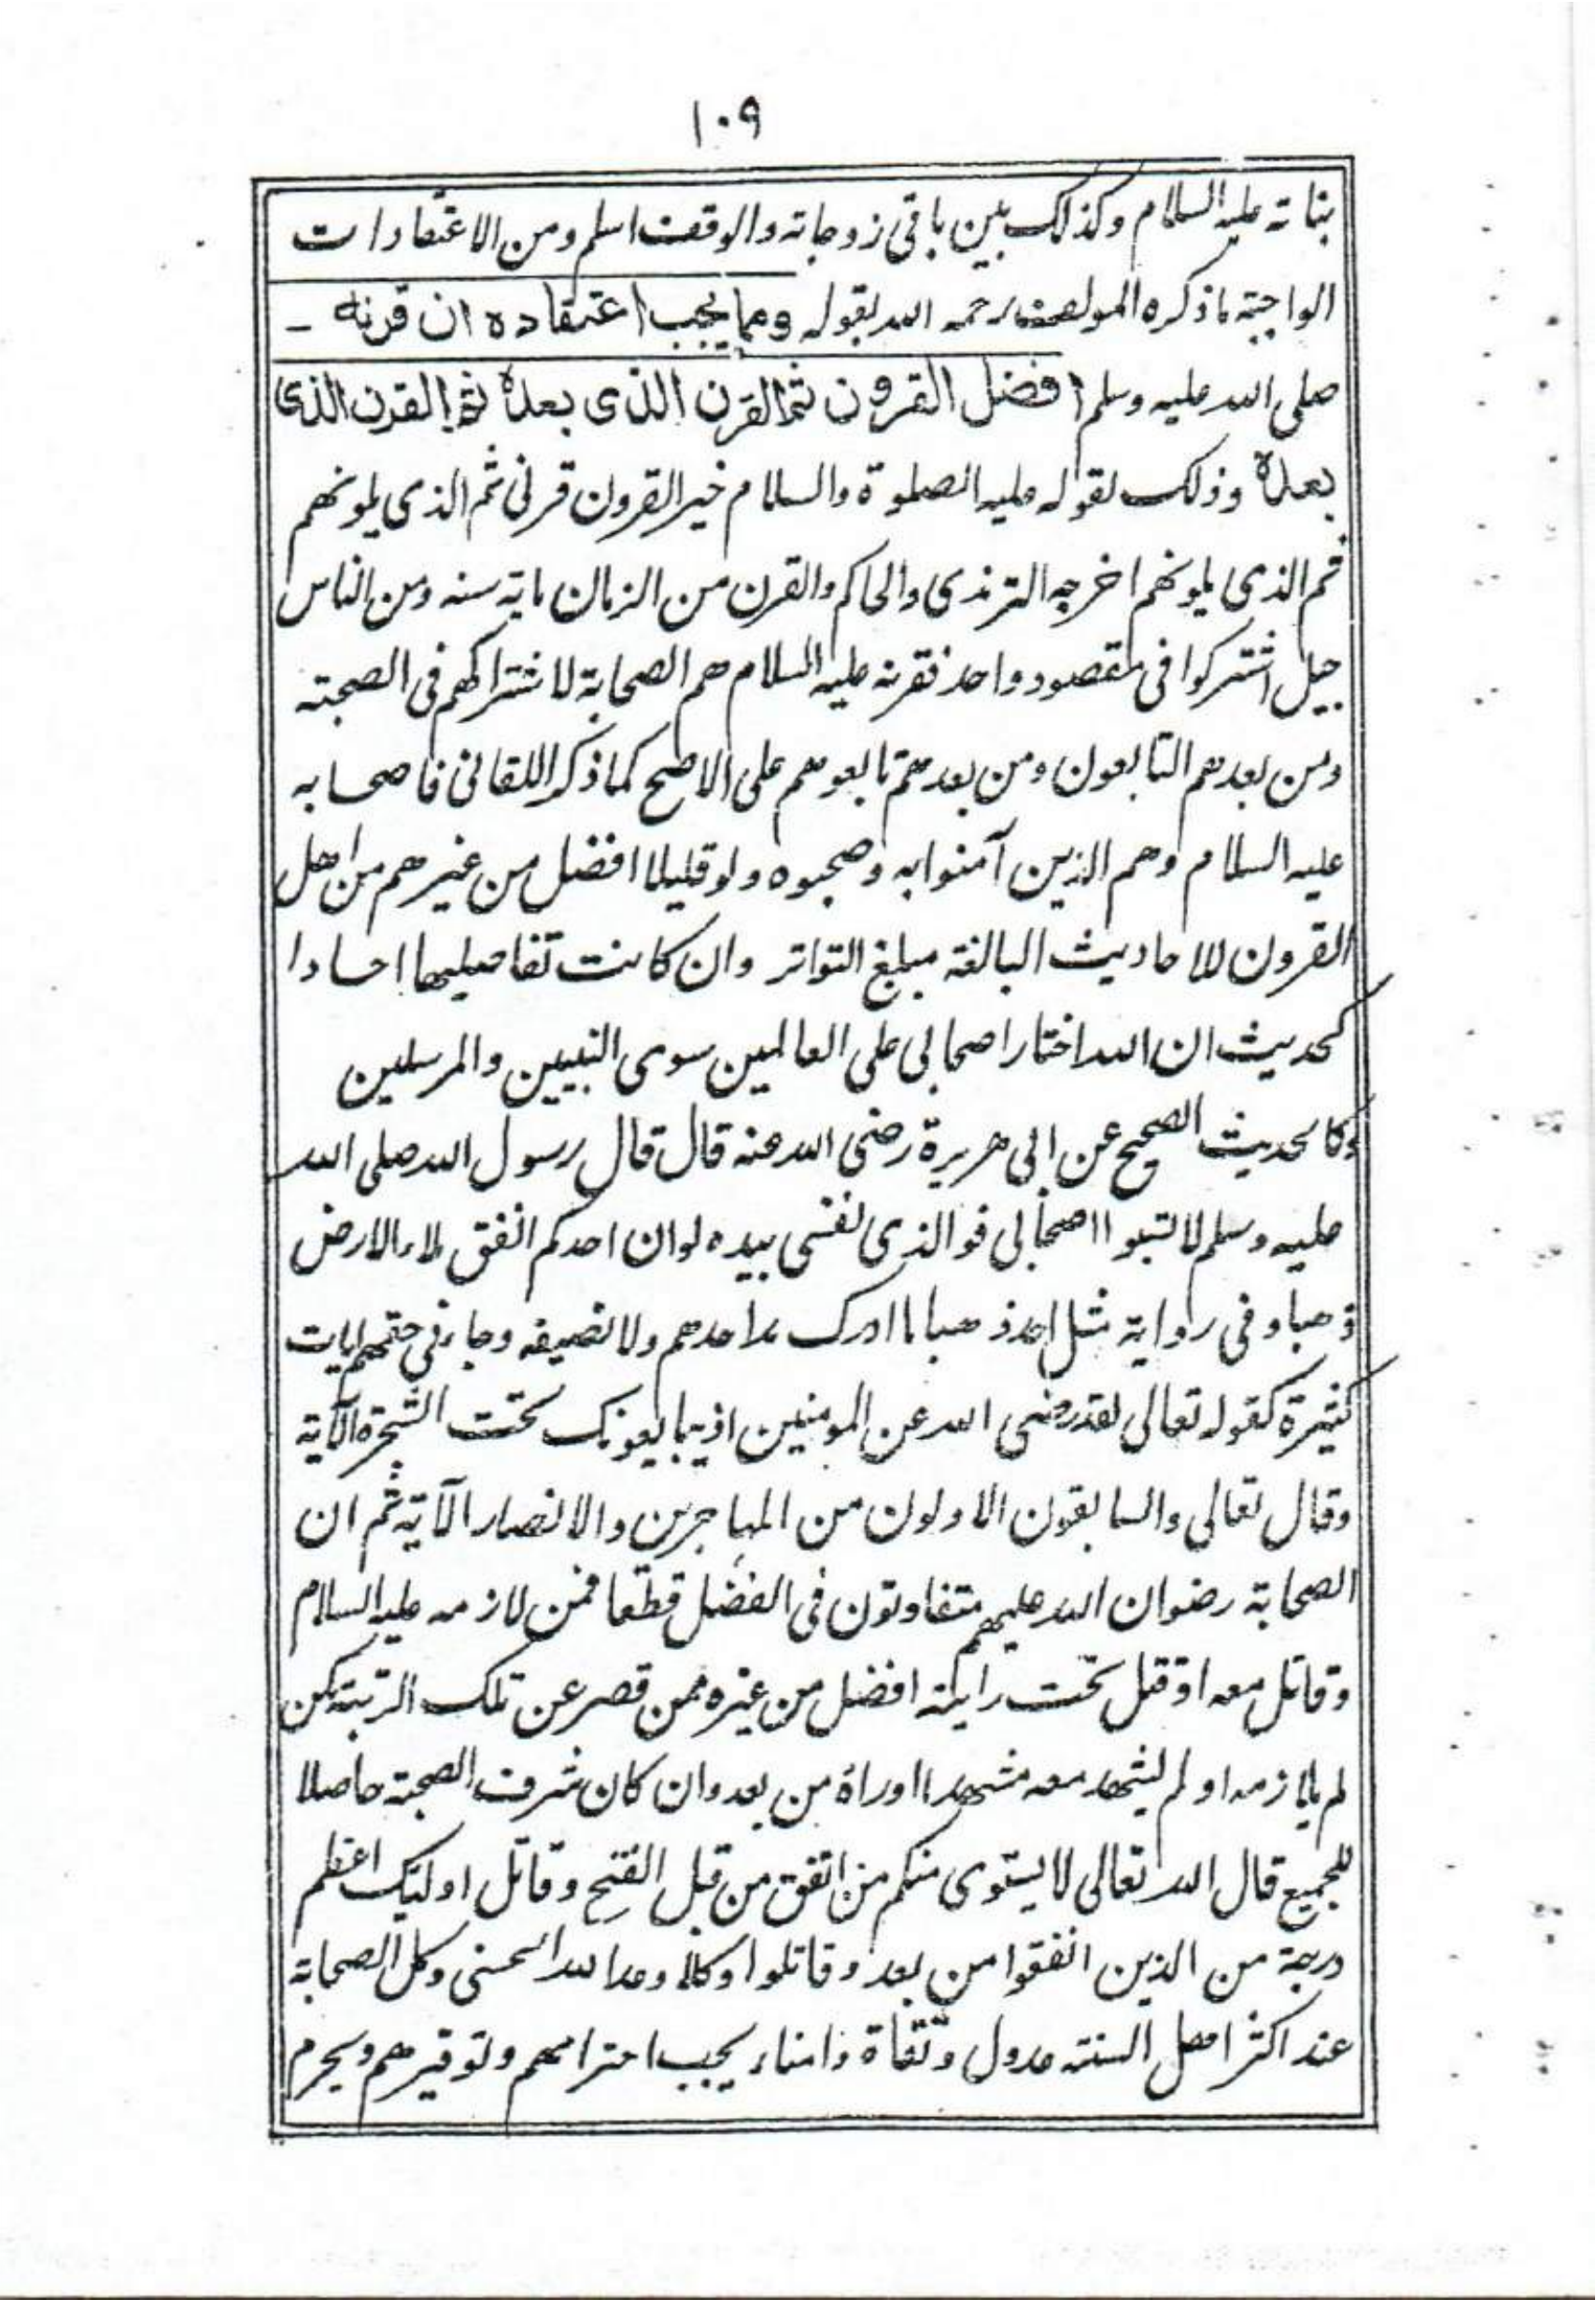 ١٠٩
بناته عليه السلام وكذلك بين باقى زوجاته والوقف اسلم ومن الاعتقادات
الواجبة ما ذكره المولف رحمه الله بقوله ومما يجب اعتقاده ان قرنه -
صلى الله عليه وسلم افضل القرون ثم القرن الذى بعده ثم القرن الذى
بعده وذلك لقوله عليه الصلوة والسلام خير القرون قرنى ثم الذى يلونهم
ثم الذى يلونهم اخرجه الترمذى والحاكم والقرن من الزمان ماية سنه ومن الناس
جيل اشتركوا فى مقصود واحد فقرنه عليه السلام هم الصحابة لاشتراكهم فى الصحبته
ومن بعدهم التابعون ومن بعدهم تابعوهم على الاصح كما ذكر اللقانى فاصحابه
عليه السلام وهم الذين آمنوا به وصحبوه ولو قليلا افضل من غيرهم من اهل
القرون للاحاديث البالغة مبلغ التواتر وان كانت تفاصيلها احادا
كحديث ان الله اختار اصحابى على العالمين سوى النبيين والمرسلين
وكالحديث الصحيح عن ابى هريرة رضى الله عنه قال قال رسول الله صلى الله
عليه وسلم لا تسبوا اصحابى فوالذى نفسى بيده لو ان احدكم انفق ملاء الارض
ذهبا وفى رواية مثل احد ذهبا ما ادرك مد احدهم ولا نصيفه وجاء فى حقهم ايات
كثيرة كقوله تعالى لقد رضى الله عن المومنين اذ يبايعونك تحت الشجرة الآية
وقال تعالى والسابقون الاولون من المهاجرين والانصار الآية ثم ان
الصحابة رضوان الله عليهم متفاوتون فى الفضل قطعا فمن لازمه عليه السلام
وقاتل معه او قتل تحت رايته افضل من غيره ممن قصر عن تلك الرتبة كمن
لم يلازمه او لم يشهد معه مشهدا او راه من بعد وان كان شرف الصحبة حاصلا
للجميع قال الله تعالى لا يستوى منكم من انفق من قبل الفتح وقاتل اوليك اعظم
درجة من الذين انفقوا من بعد وقاتلوا وكلا وعد الله الحسنى وكل الصحابة
عند اكثر اهل السنة عدول وثقاة وامناء يجب احترامهم وتوقيرهم ويحرم